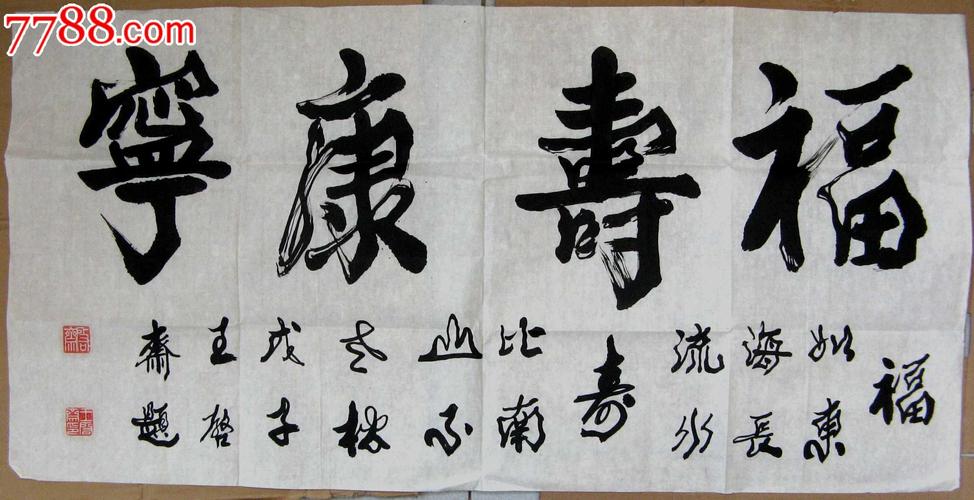 7788.com
福壽康寧
福
如東
海長
流水
寿
比南
山不
老松
戊子
王启
齋題